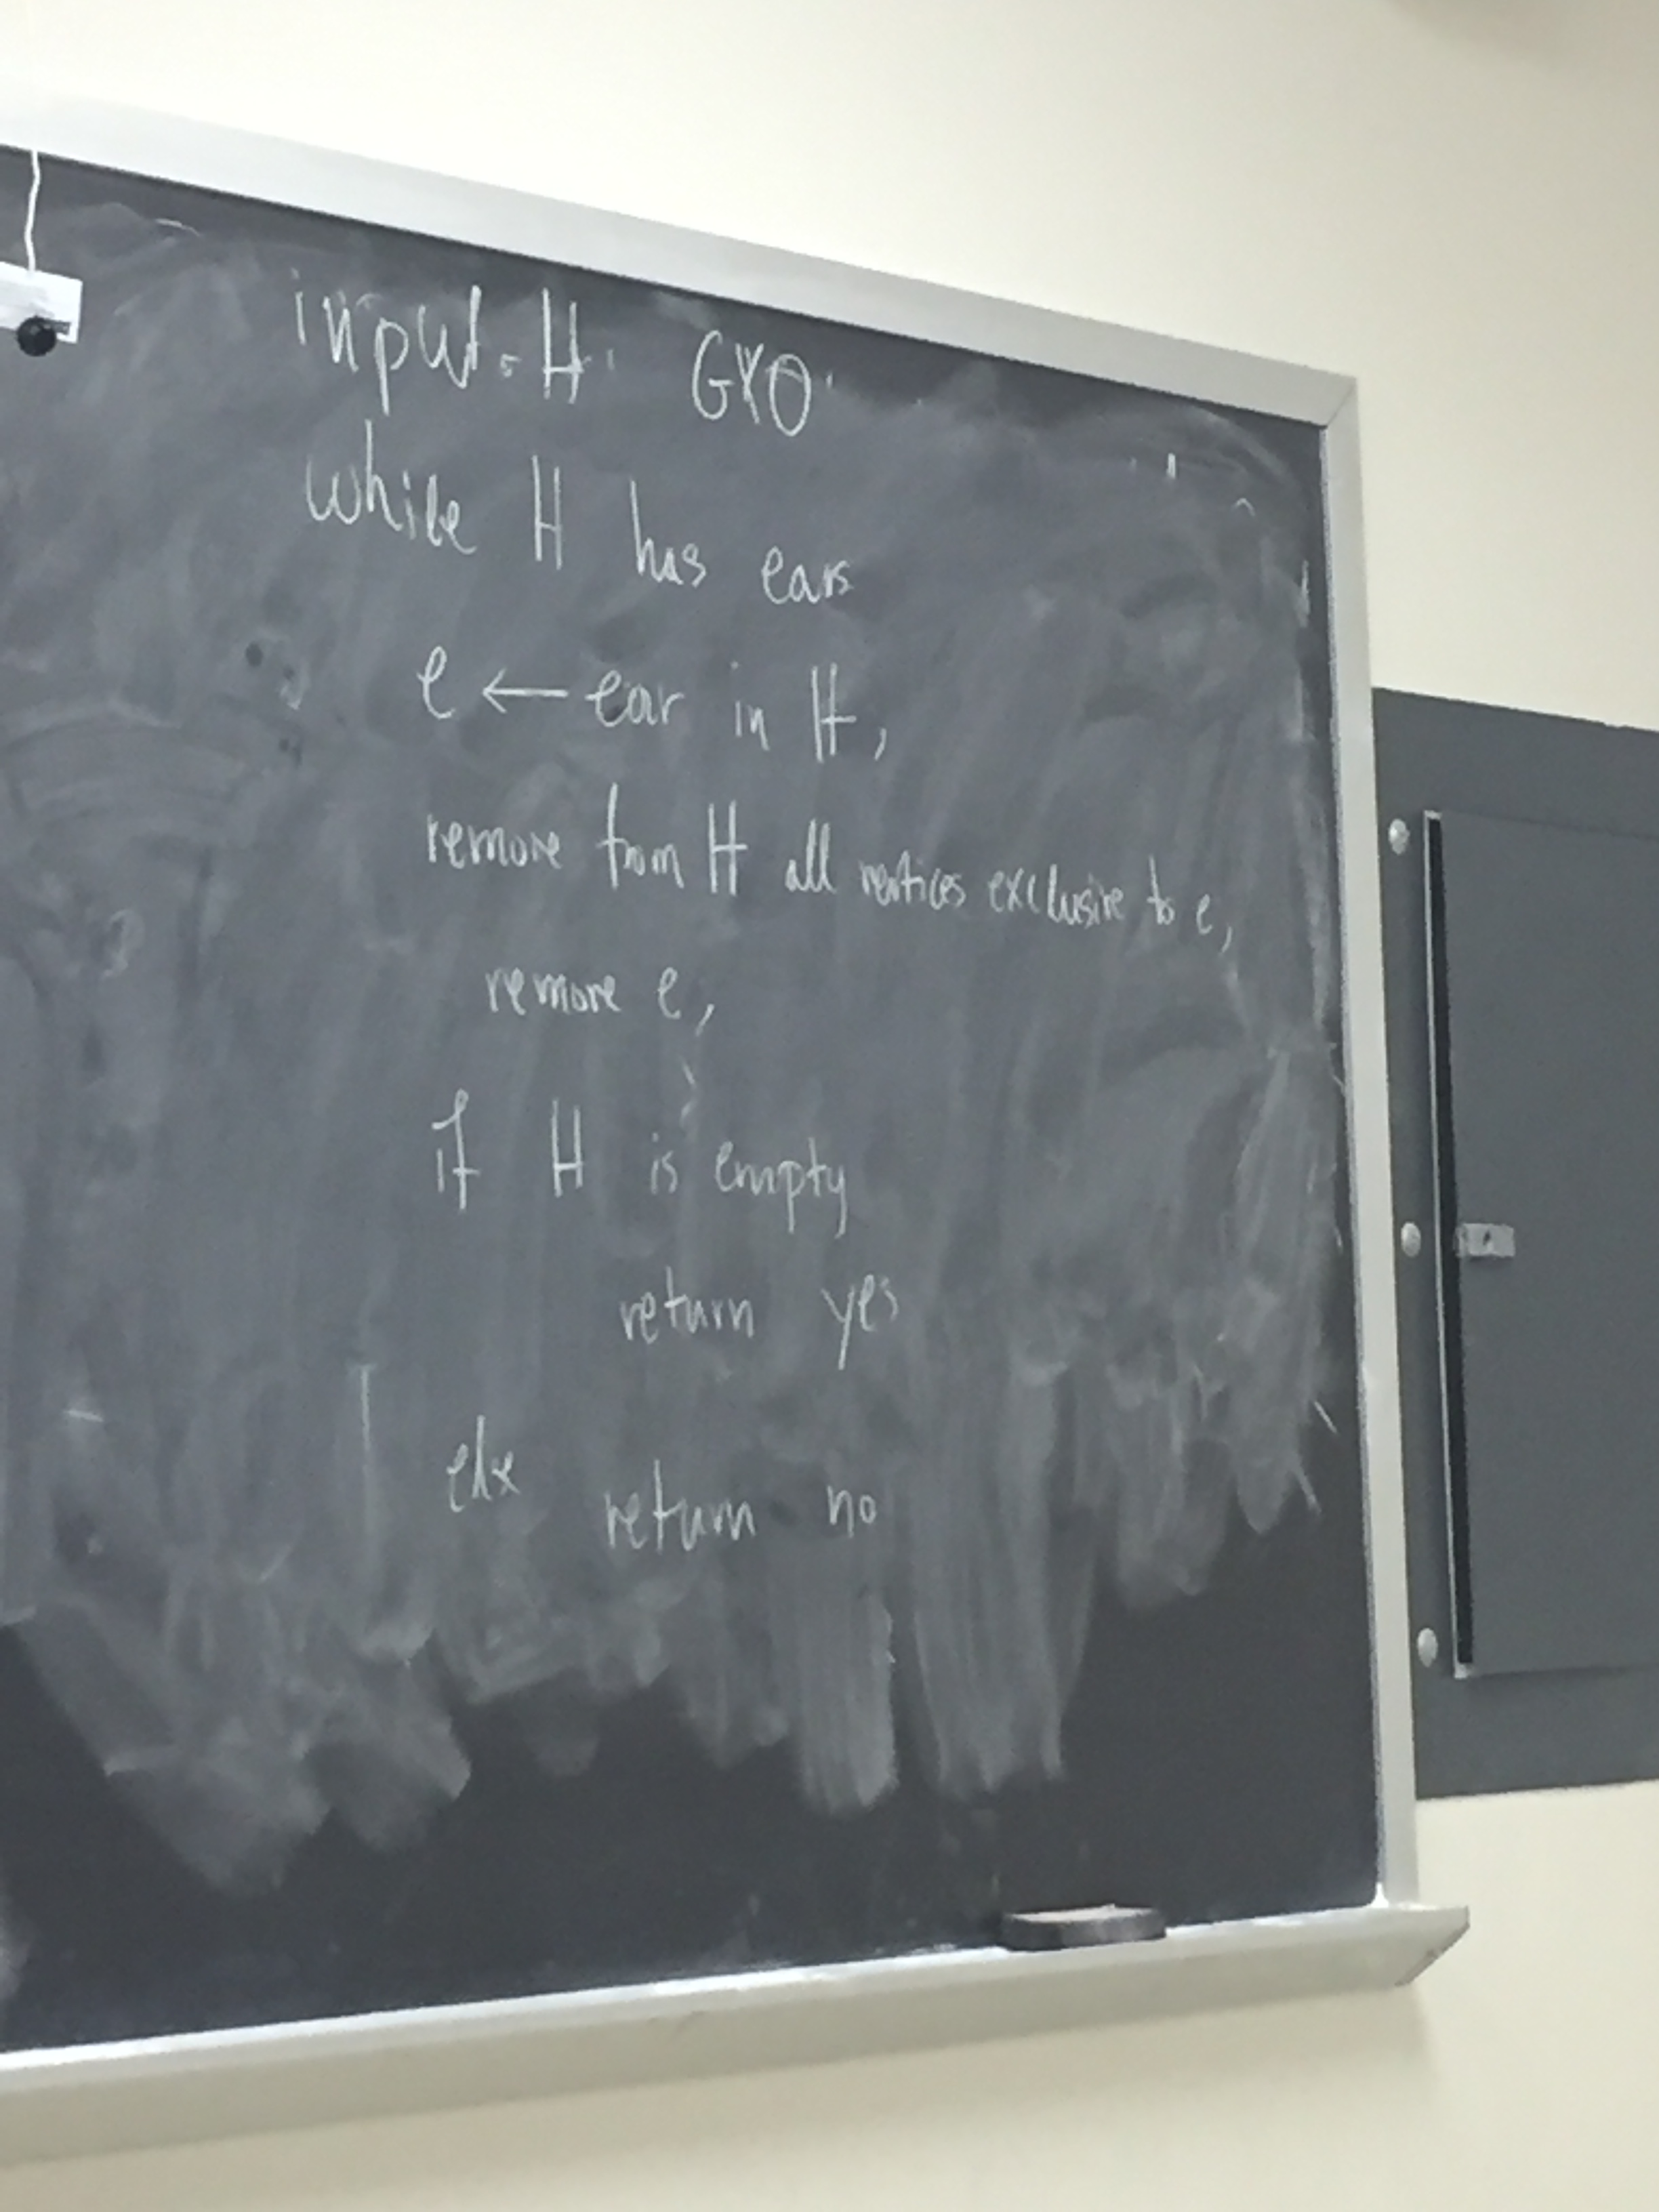 input: H GYO
while H has ears
e ← ear in H,
remove from H all vertices exclusive to e,
remove e,
if H is empty
return yes
else return no